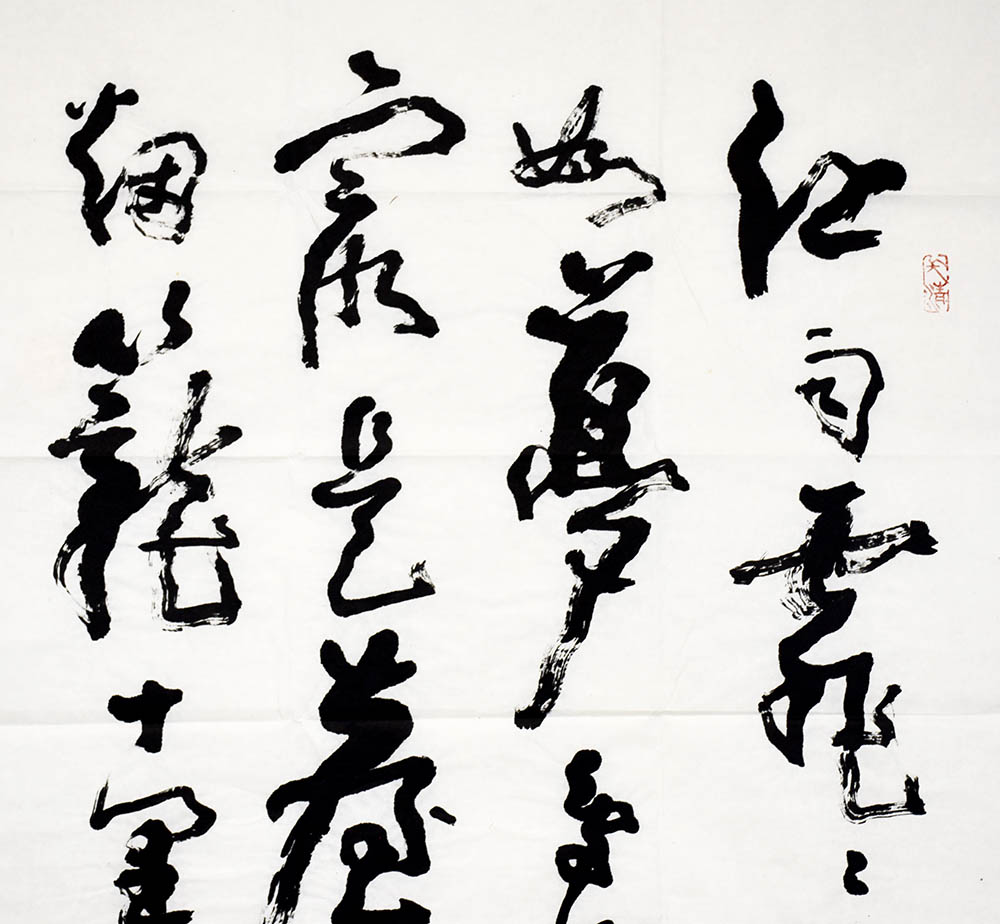 江雨霏〻
如夢鳥
最是臺
烟籠十里